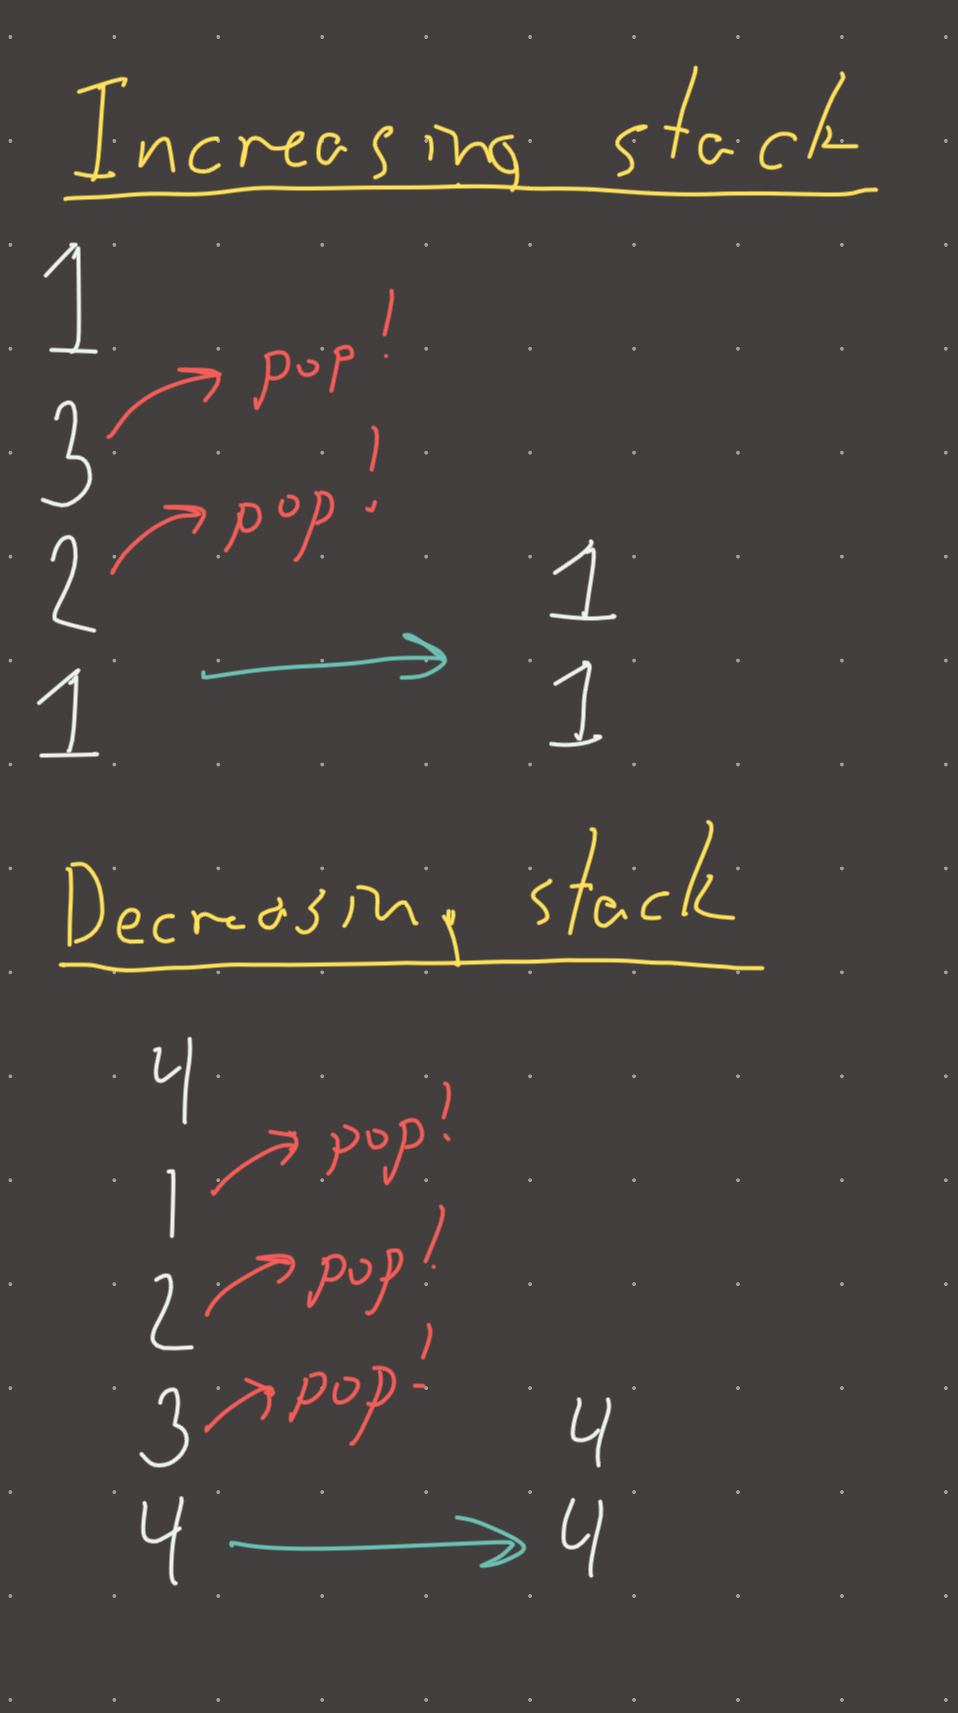 Increasing stack
1
pop!
3
pop!
2
1
1
1
Decreasing stack
4
pop!
1
pop!
2
pop!
3
4
4
4